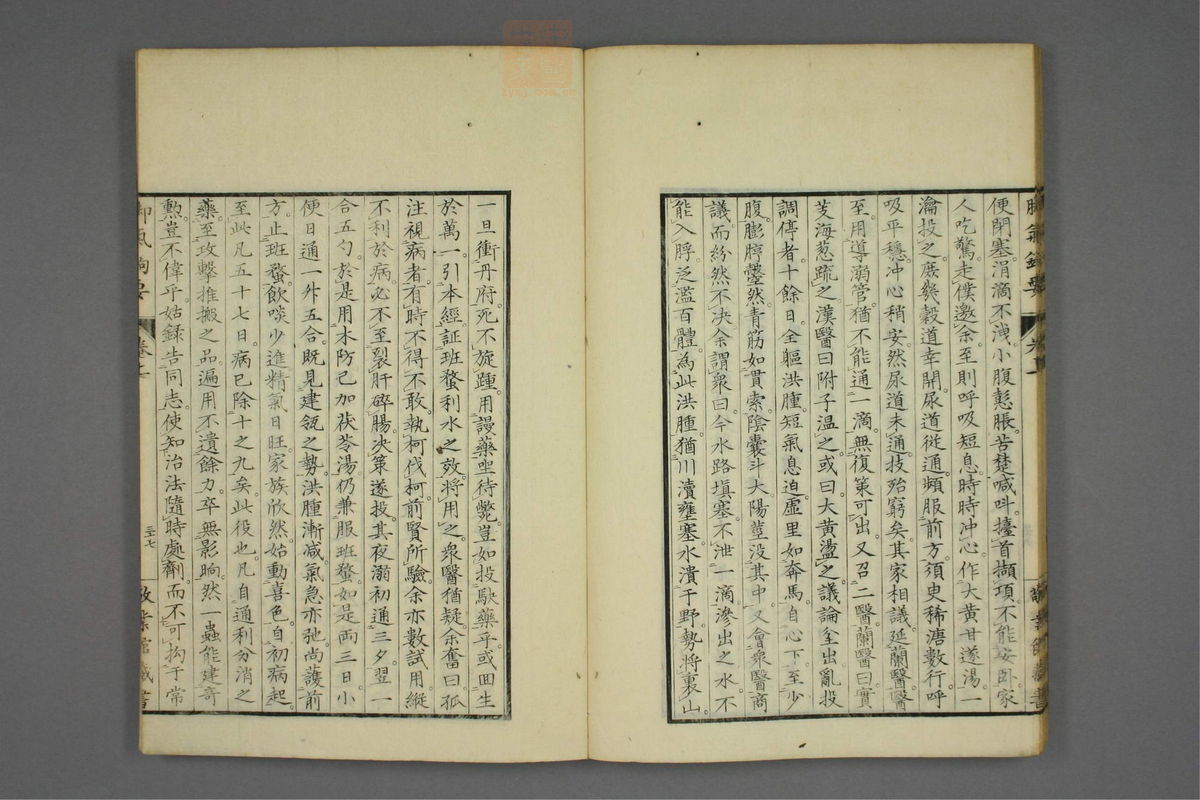 便閉塞涓滴不洩小腹膨脹苦楚喊呌擡首擷項不能安卧家
人吃驚走僕邀余至則呼吸短息時時冲心作大黄甘遂湯一
瀹投之庶幾穀道幸開尿道從通頻服前方須臾稀溏數行呼
吸平穩冲心稍安然尿道未通技殆窮矣其家相議延蘭醫醫
至用導溺管猶不能通一滴無復策可出又召二醫蘭醫曰實
芰海葱疏之漢醫曰附子温之或曰大黄盪之議論全出亂投
調停者十餘日全軀洪腫短氣息迫虚里如奔馬自心下至少
腹膨脝甕然青筋如貫索陰囊斗大陽莖没其中又會衆醫商
議而紛然不决余謂衆曰今水路塡塞不泄一滴滲出之水不
能入脬泛濫百體為此洪腫猶川瀆壅塞水潰于野勢將裏山
一旦衝丹府死不旋踵用謾藥坐待斃豈如投駃藥乎或回生
於萬一引本經証班蝥利水之效將用之衆醫猶疑余奮曰孤
注視病者有時不得不敢執柯伐柯前賢所驗余亦數試用縱
不利於病必不至裂肝碎腸决策遂投其夜溺初通三夕翌一
合五勺於是用木防己加茯苓湯仍兼服班蝥如是両三日小
便日通一升五合既見建瓴之勢洪腫漸减氣急亦弛尚護前
方止班蝥飲啖少進精氣日旺家族欣然始動喜色自初病起
至此凡五十七日病已除十之九矣此役也凡自通利分消之
藥至攻擊推搬之品遍用不遺餘力卒無影晌然一蟲能建奇
勲豈不偉乎姑録告同志使知治法隨時處劑而不可拘于常
脚氣鉤要 卷之 三十七